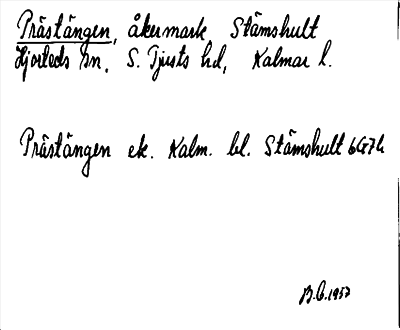 Prästängen, åkermark Stämshult
Hjorteds sn. S. Tjusts hd, Kalmar l.
Prästängen ek. Kalm. bl. Stämshult 6G7h
B.C. 1957